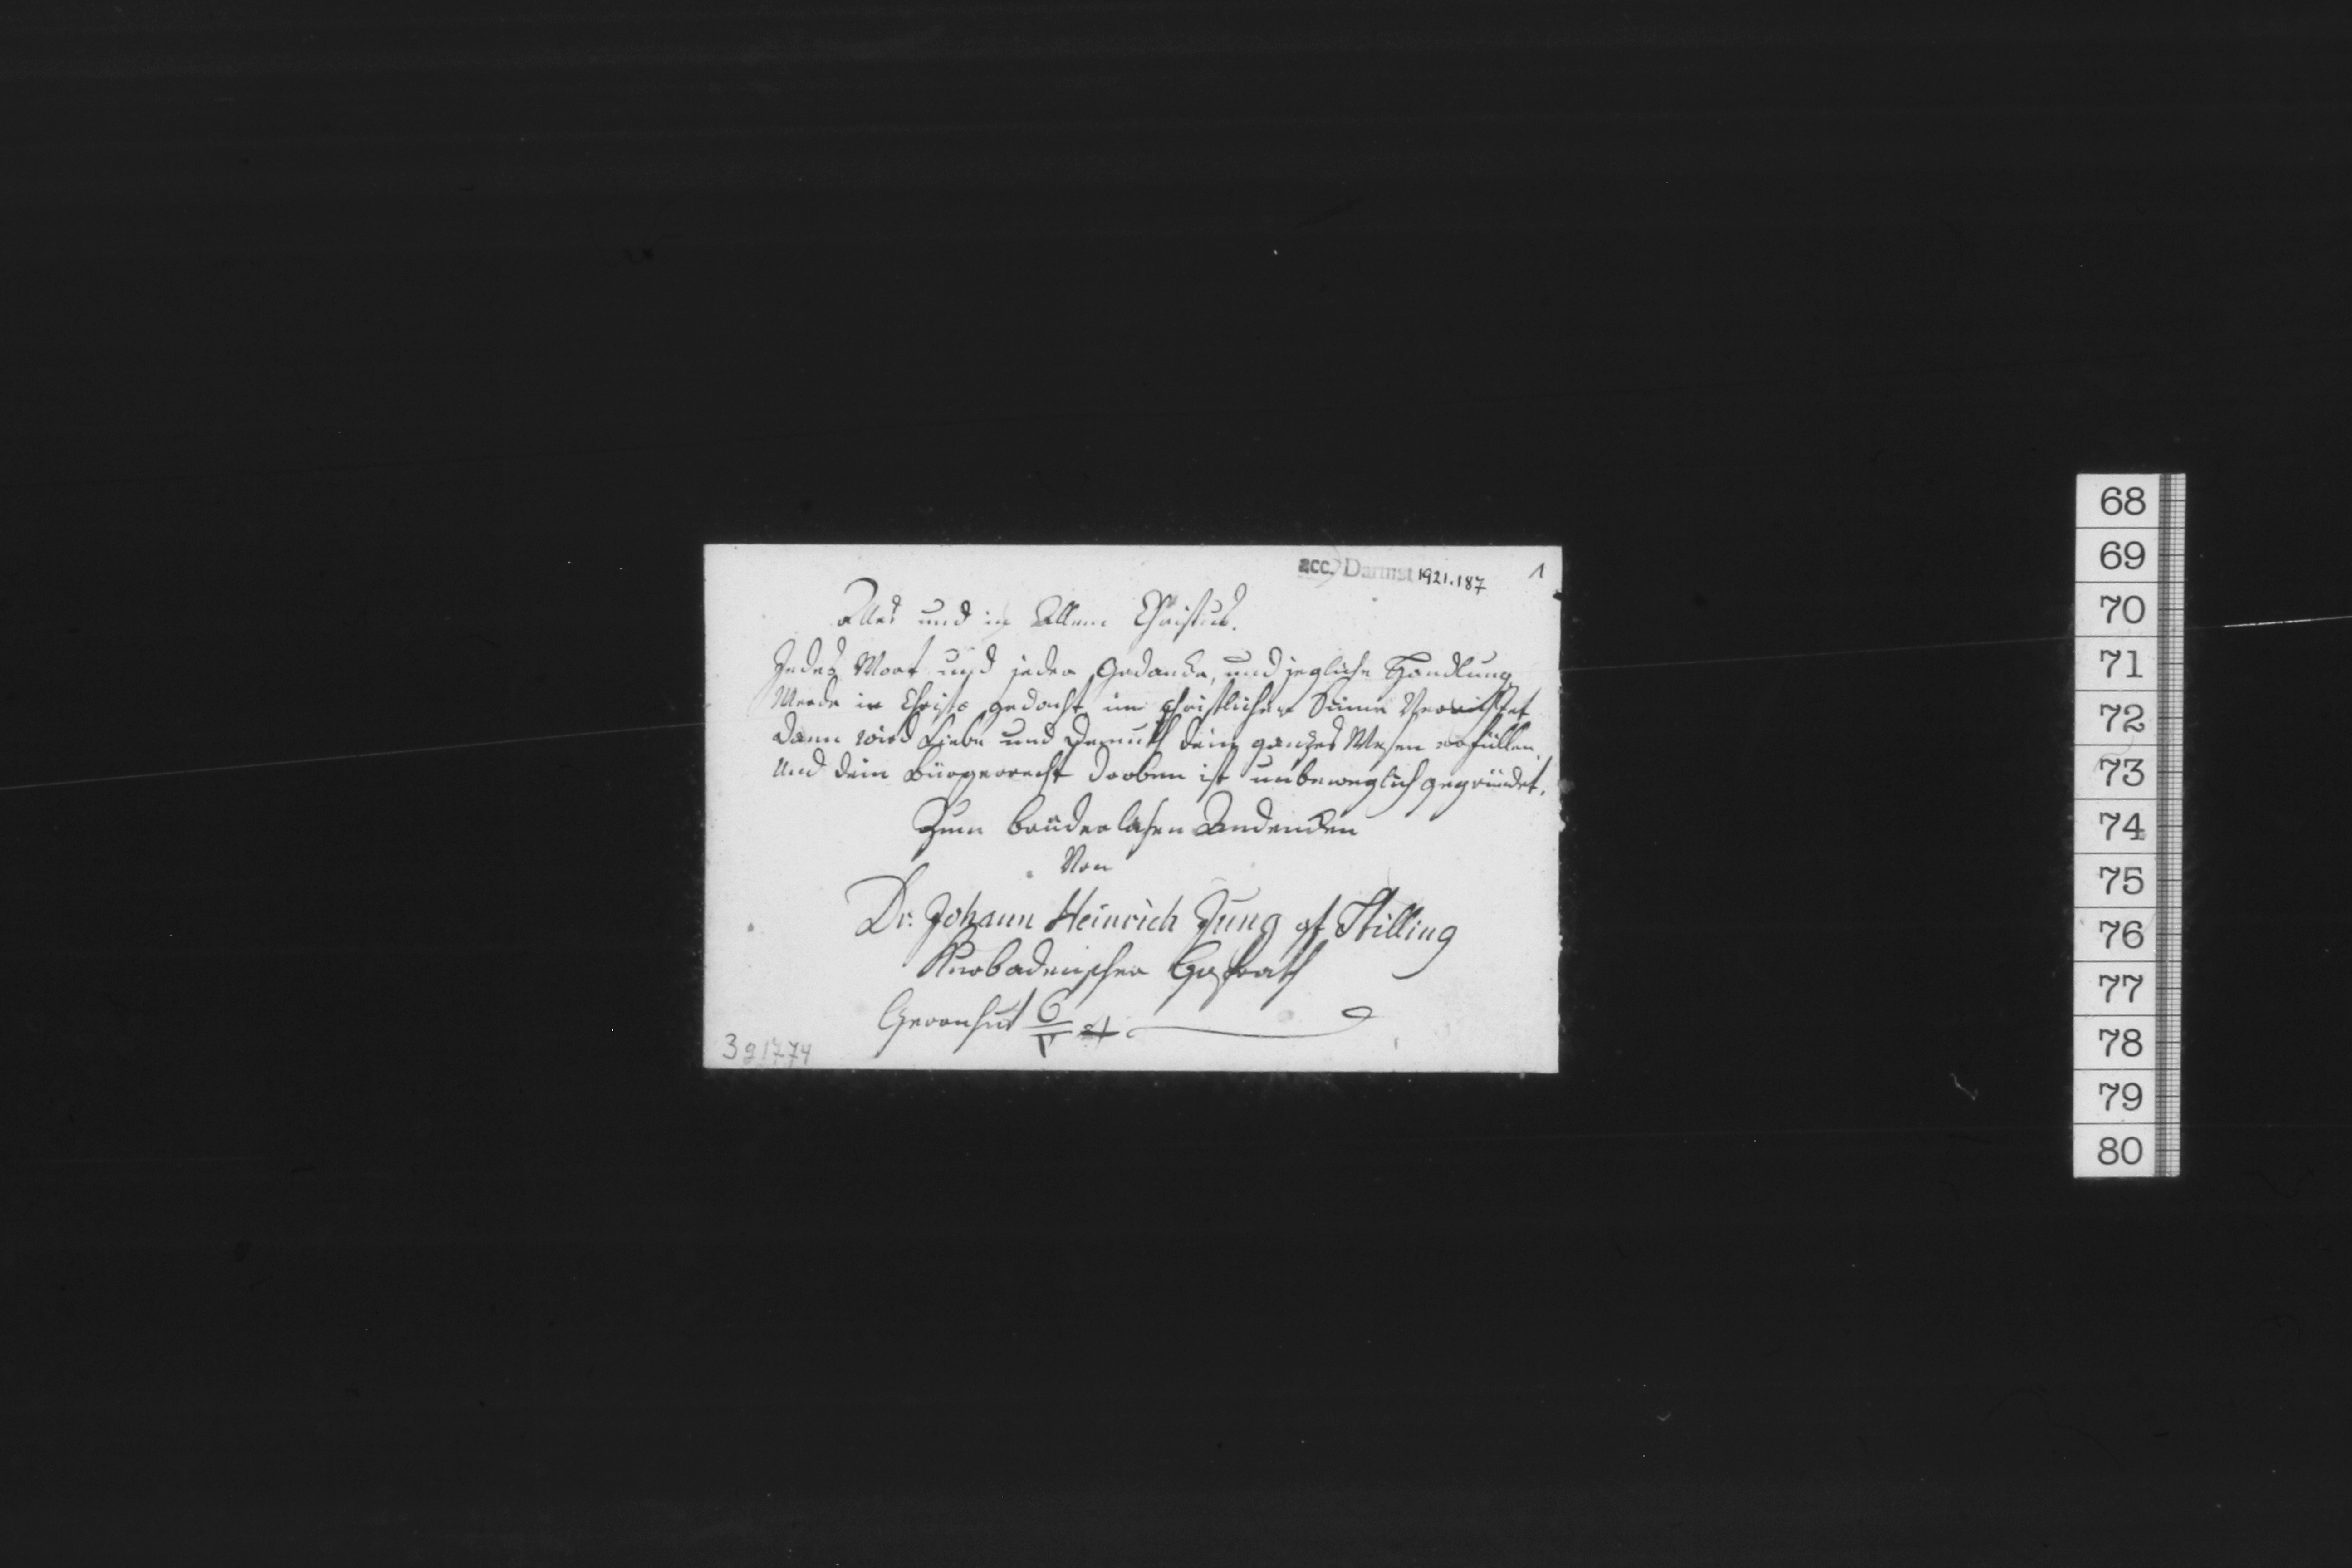 acc. Darmst 1921.187 1
Alles und in Allem Christus.
Jedes Wort und jeder Gedancke, und jegliche Handlung
Werde in Christo gedacht im christlichen Sinne Verrichtet
Dann wird Liebe und Demuth dein ganzes Wesen erfüllen.
Und dein Bürgerrecht droben ist unbeweglich gegründet.
Zum brüderlichen Andencken
Von
Dr. Johann Heinrich Jung gt Stilling
Kurbadenscher Hofrath
Herrnhut 6
391774
68
69
70
71
72
73
74
75
76
77
78
79
80